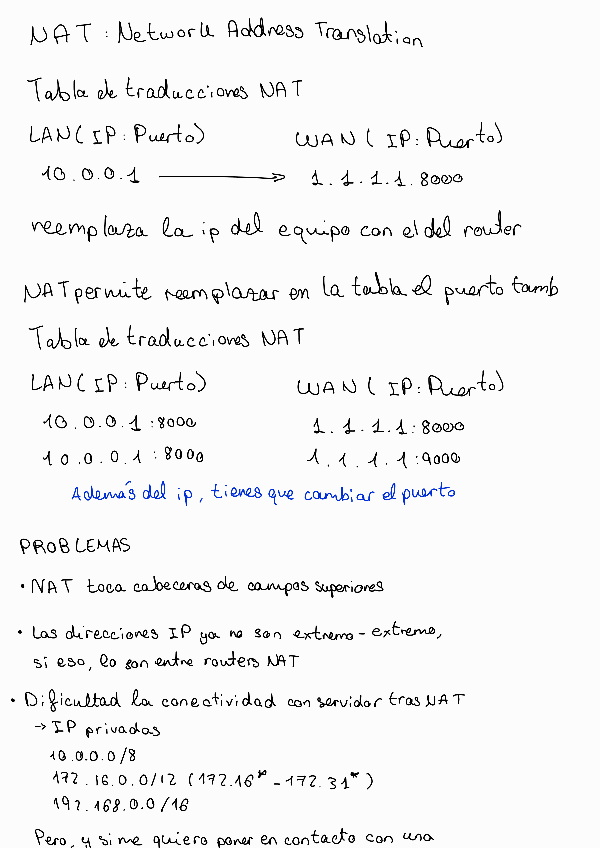 NAT : Network Address Translation
Tabla de traducciones NAT
LAN ( IP : Puerto)
WAN ( IP : Puerto)
10.0.0.1 → 1.1.1.1.8000
reemplaza la ip del equipo con el del router
NAT permite reemplazar en la tabla el puerto tamb
Tabla de traducciones NAT
LAN ( IP : Puerto)
WAN ( IP : Puerto)
10.0.0.1 :8000
1.1.1.1:8000
10.0.0.1 :8000
1.1.1.1:9000
Además del ip, tienes que cambiar el puerto
PROBLEMAS
• NAT toca cabeceras de campos superiores
• Las direcciones IP ya no son extremo - extremo,
si eso, lo son entre routers NAT
• Dificultad la conectividad con servidor tras NAT
→ IP privadas
10.0.0.0/8
172.16.0.0/12 (172.16* - 172.31*)
192.168.0.0/16
Pero, y si me quiero poner en contacto con una